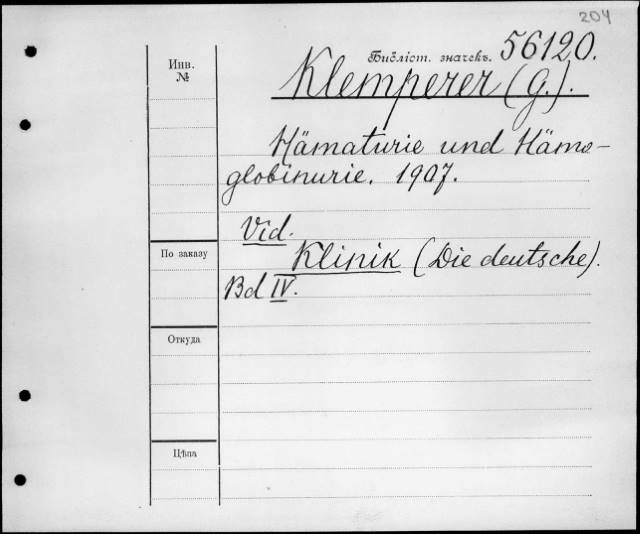 204
Инв.
№
Библіот. значекъ. 56120.
Klemperer (G.).
Hämaturie und Hämo-
globinurie. 1907.
Vid.
Klinik (Die deutsche).
Bd IV.
По заказу
Откуда
Цѣна